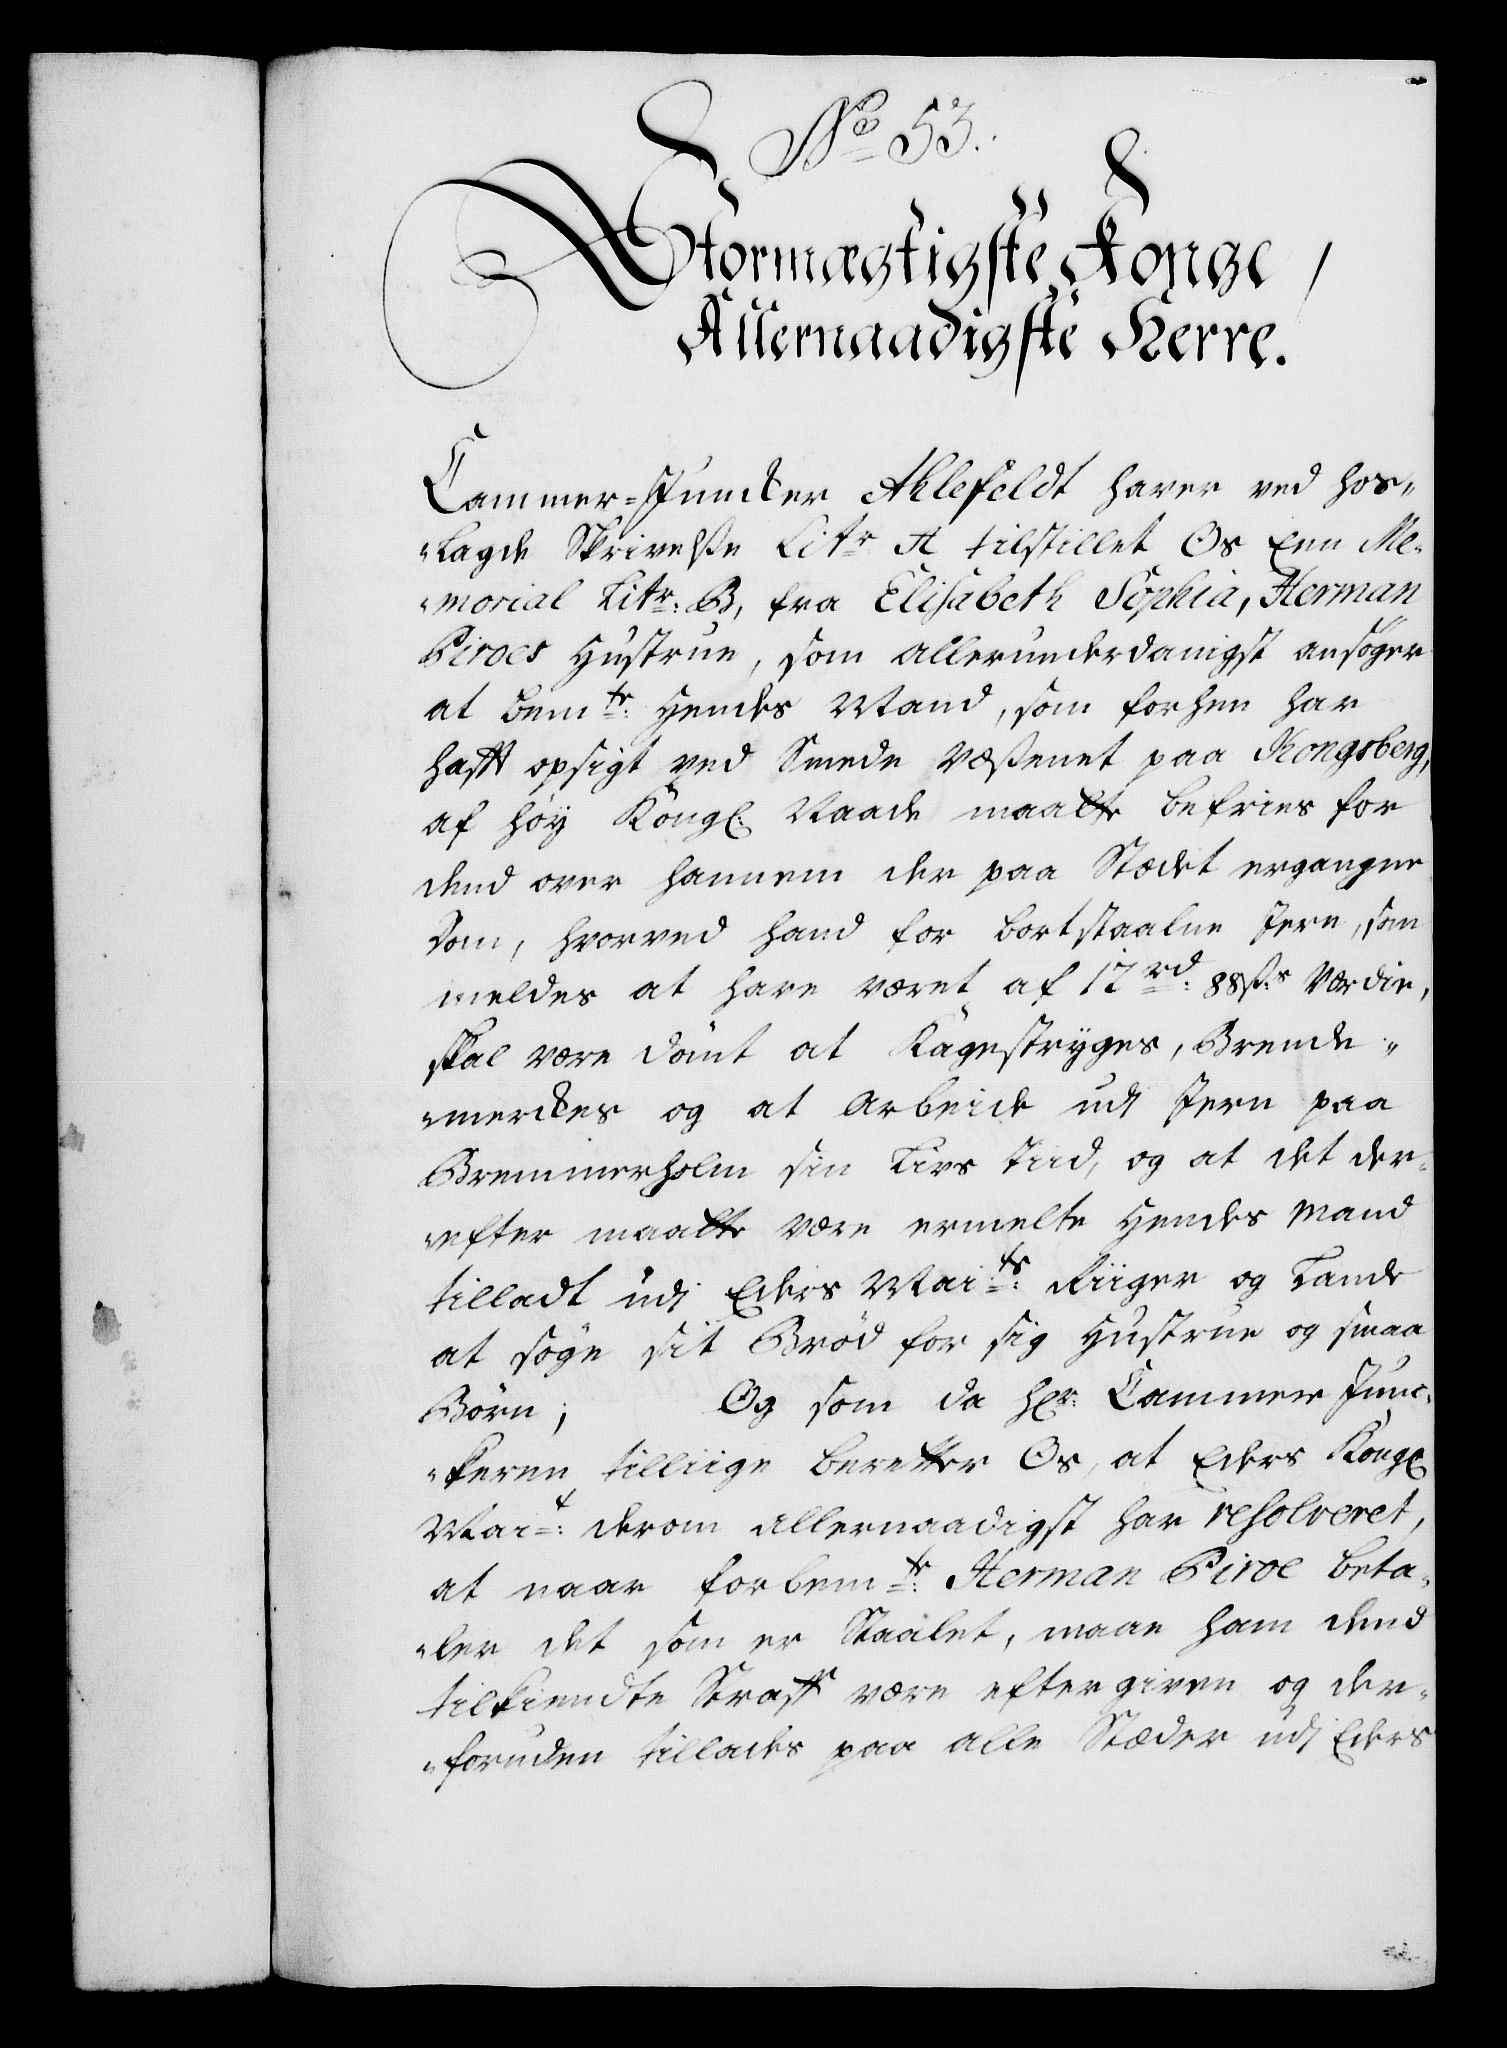 No 53.
Stormægtigste Konge /
Allernaadigste Herre.
Cammer=Juncker Ahlefeldt haver ved hos„
„lagde Skrivelße Litr A tilstillet Os Een Me„
„morial Litr: B, fra Elisabeth Sophia, Herman
Piroes Hustrue, som allerunderdanigst ansøger
at bemte: Hendes Mand, som forhen har
hafft opsigt ved Smede Væßenet paa Kongsberg,
af høy Kongl: Naade maatte befries for
dend over hannem der paa Stædet ergangne
Dom, hvorved hand for bortstaalne Jern, som
meldes at have været af 12 rd: 88 ß:s Værdie,
skal være dömt at Kagestryges, Brende„
„merckes og at Arbeide udj Jern paa
Bremmerholm sin Livs Tiid, og at det der„
„efter maatte være ermelte Hendes Mand
tilladt udj Eders Maits: Riiger og Lande
at søge sit Brød for sig Hustrue og smaa
Børn; Og som da Hr: Cammer Junc„
„keren tilliige beretter Os, at Eders Kongl
Mait: derom allernaadigst har resolveret,
at naar forbemte: Herman Piroe beta„
„ler det som er Staalet, maae ham dend
tilkiendte Straff være eftergiven og der„
„foruden tillades paa alle Stæder udj Eders